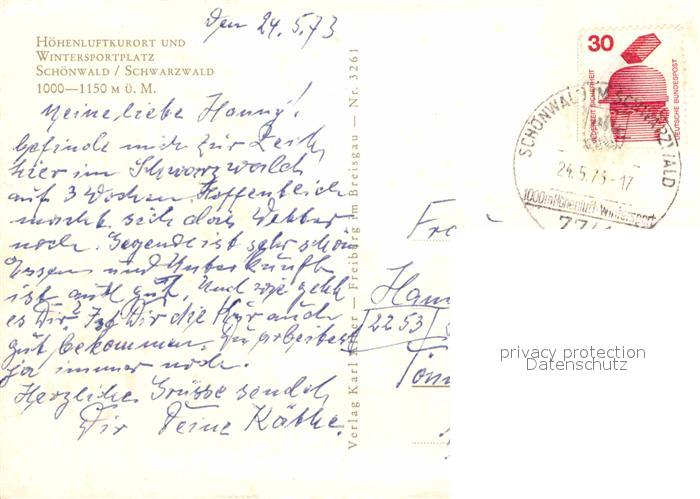 den 24.5.73
HÖHENLUFTKURORT UND
WINTERSPORTPLATZ
SCHÖNWALD / SCHWARZWALD
1000—1150 M Ü. M.
Meine liebe Hanny!
befinde mich zur Zeit
hier im Schwarzwald
auf 3 Wochen. Hoffentlich
macht sich das Wetter
noch. Gegend ist sehr schön
Essen und Unterkunft
ist auch gut. Und wie geht
es Dir? Ist Dir die Kur auch
gut bekommen. Du arbeitest
ja immer noch.
Herzliche Grüsse sendet
Dir Deine Käthe.
Verlag Karl Alber — Freiburg im Breisgau — Nr. 3261
30
JEDERZEIT SICHERHEIT
DEUTSCHE BUNDESPOST
SCHÖNWALD IM SCHWARZWALD
24.5.73-17
1000m Höhenluft-Wintersport
774
Fr
Han
2253
Tönn
privacy protection
Datenschutz